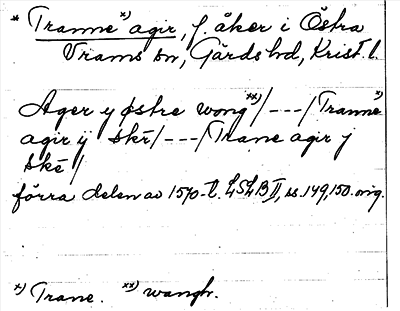 * Tranne x) agir, f. åker i Östra
Vrams sn, Gärds hd, Krist. l.
Ager y østre wong xx)/---/Tranne x)
agir ij skē/---/Trane agir j
skē/
förra delen av 1570-t. LSLB II, ss. 149, 150. orig.
x) Trane. xx) wangh.